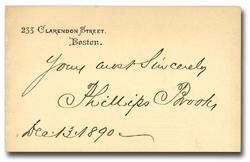 233 Clarendon Street.
Boston.
Yours most Sincerely
Phillips Brooks
Dec. 13. 1890